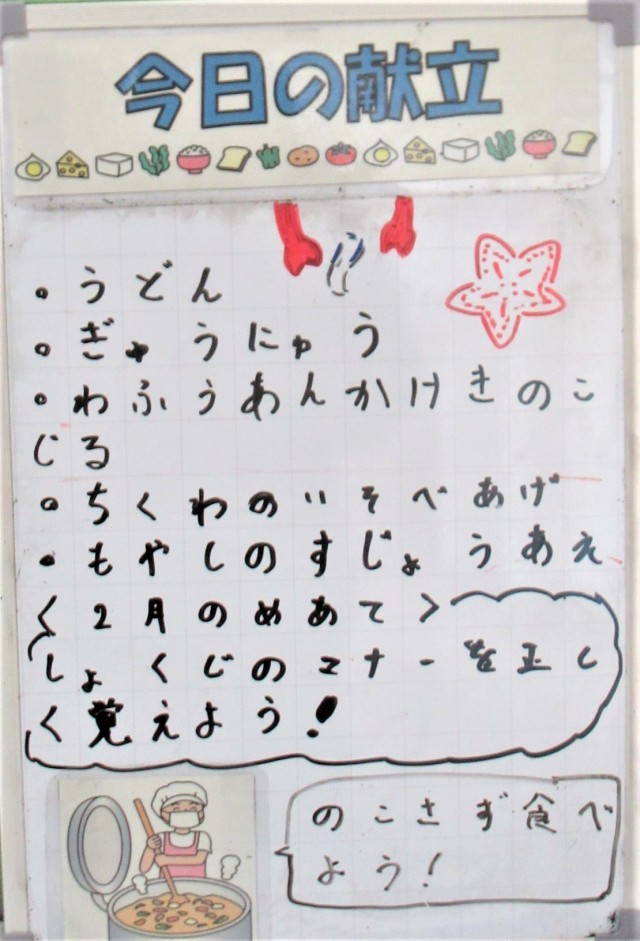 今日の献立
。うどん
。ぎゅうにゅう
。わふうあんかけきのこ
じる
。ちくわのいそべあげ
。もやしのすじょうあえ
<2月のめあて>
しょくじのマナーを正し
く覚えよう!
のこさず食べ
よう!